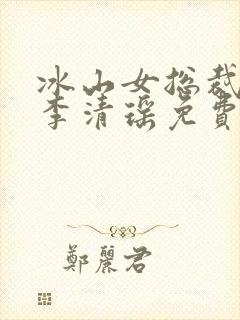 冰山女总裁
李清瑶免費
鄭麗君